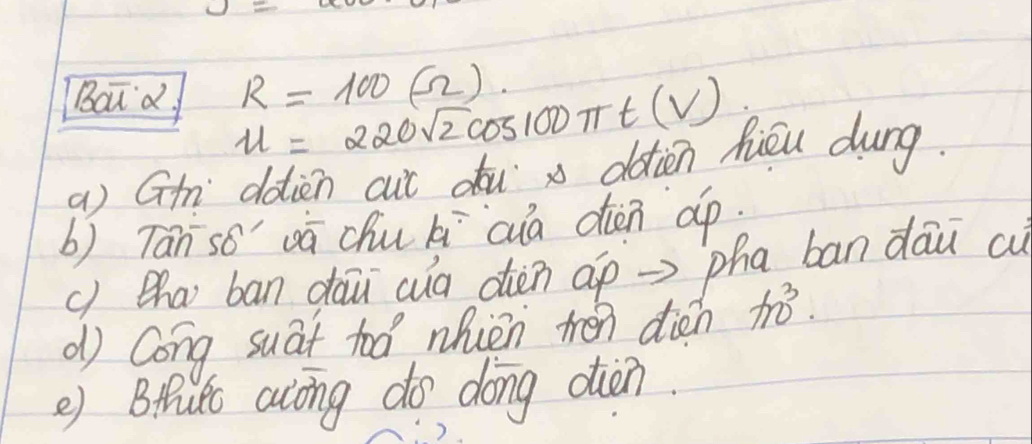 Bài 2. R = 100 (Ω).
u = 220√2 cos100πt (V).
a) Gtrị dđtiện cực đại & dđtiện hiệu dụng.
b) Tần số và chu kì của điện áp.
c) Pha ban đầu của điện áp → pha ban đầu củ
d) Công suất toả nhiên trên điện trở.
e) Bthức cường độ dòng điện.